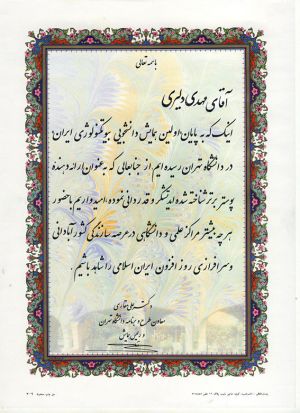 باسمه تعالی
آقای مهدی دلیری
اینک که به پایان اولین همایش دانشجویی بیوتکنولوژی ایران
در دانشگاه تهران رسیده ایم از جنابعالی که به عنوان ارائه دهنده
پوستر برتر شناخته شده اید تشکر و قدردانی نموده، امیدواریم با حضور
هر چه بیشتر مراکز علمی و دانشگاهی در عرصه سازندگی کشور آبادانی
و سرافرازی روز افزون ایران اسلامی را شاهد باشیم.
دکتر علی
معاون طرح و برنامه دانشگاه تهران
و رئیس همایش